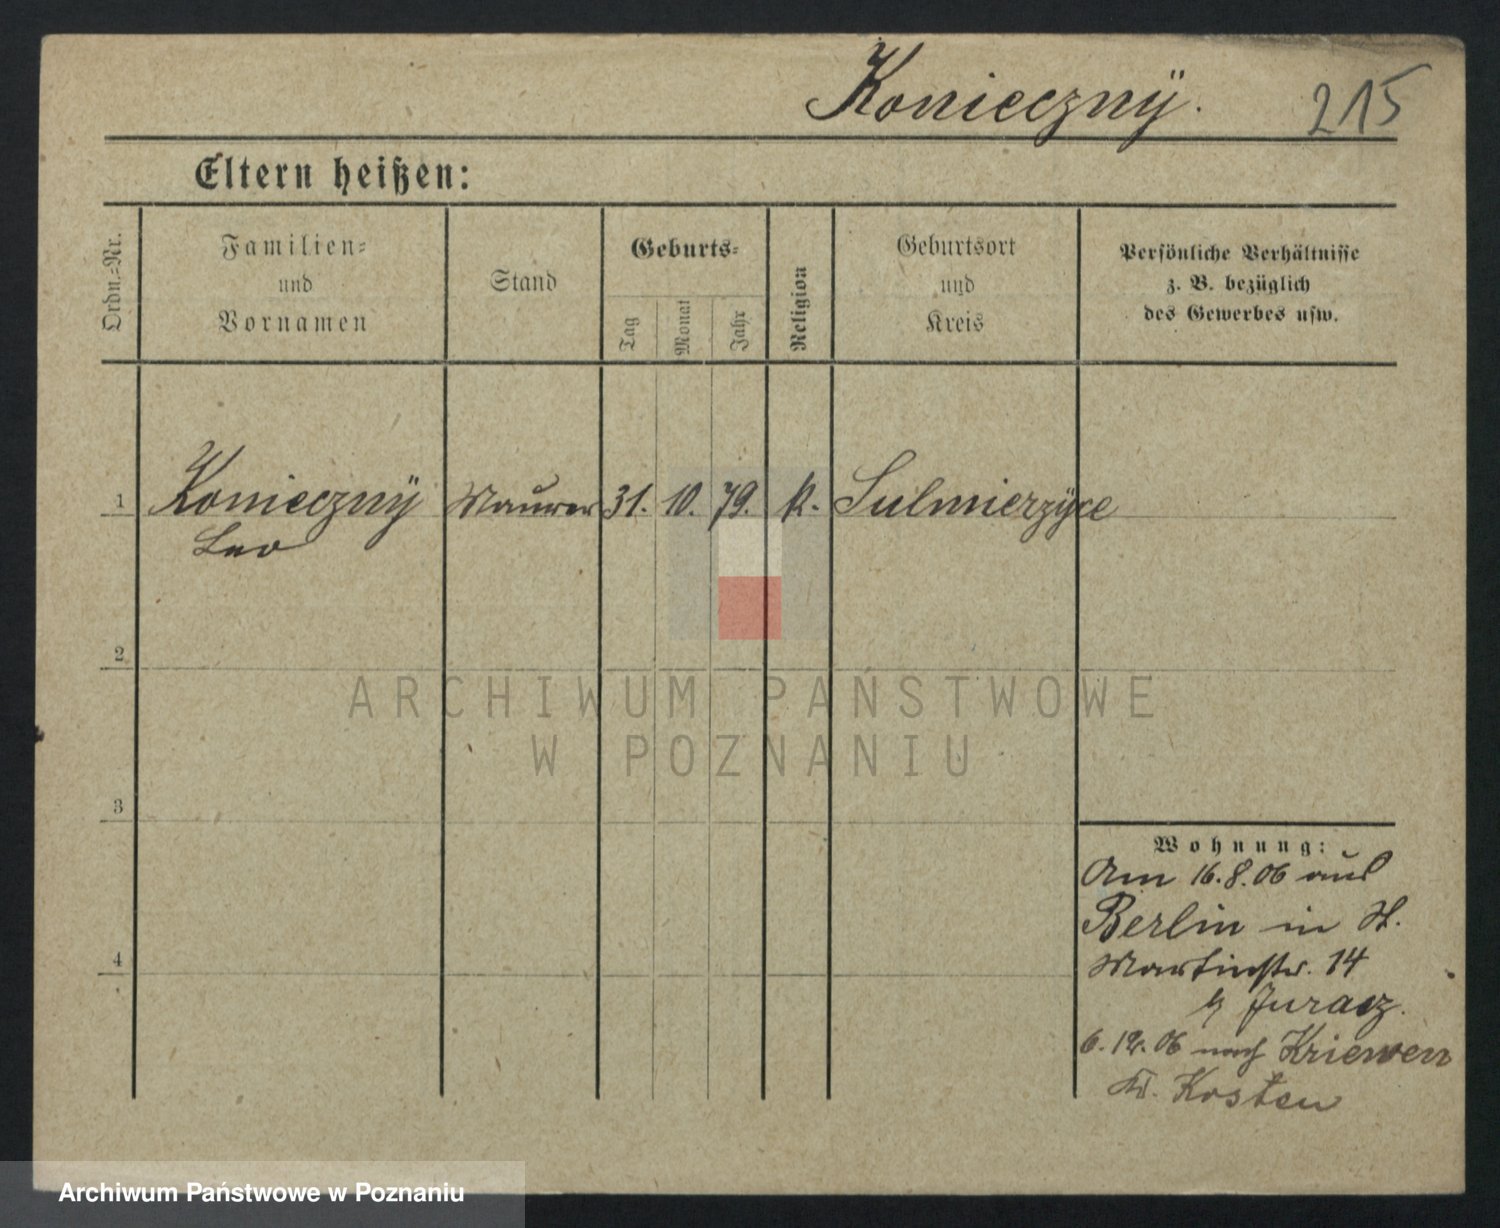 Koniecznÿ. 215
Eltern heißen:
Ordn.-Nr.
Familien-
und
Vornamen
Stand
Geburts-
Tag
Monat
Jahr
Religion
Geburtsort
und
Kreis
Persönliche Verhältnisse
z. B. bezüglich
des Gewerbes usw.
1 Koniecznÿ Maurer 31. 10. 79. k. Sulmierzÿce
Leo
2
3
4
Wohnung:
Am 16.8.06 aus
Berlin in St.
Martinstr. 14
b/ Juracz.
6.12.06 nach Kriewen
Kr. Kosten
ARCHIWUM PAŃSTWOWE
W POZNANIU
Archiwum Państwowe w Poznaniu